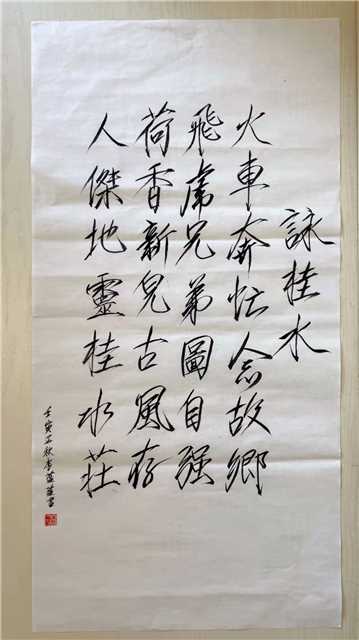 詠桂水
火車奔忙念故鄉
飛虎兄弟圖自强
荷香新兒古風存
人傑地靈桂水莊
壬寅孟秋李蓝蓝書